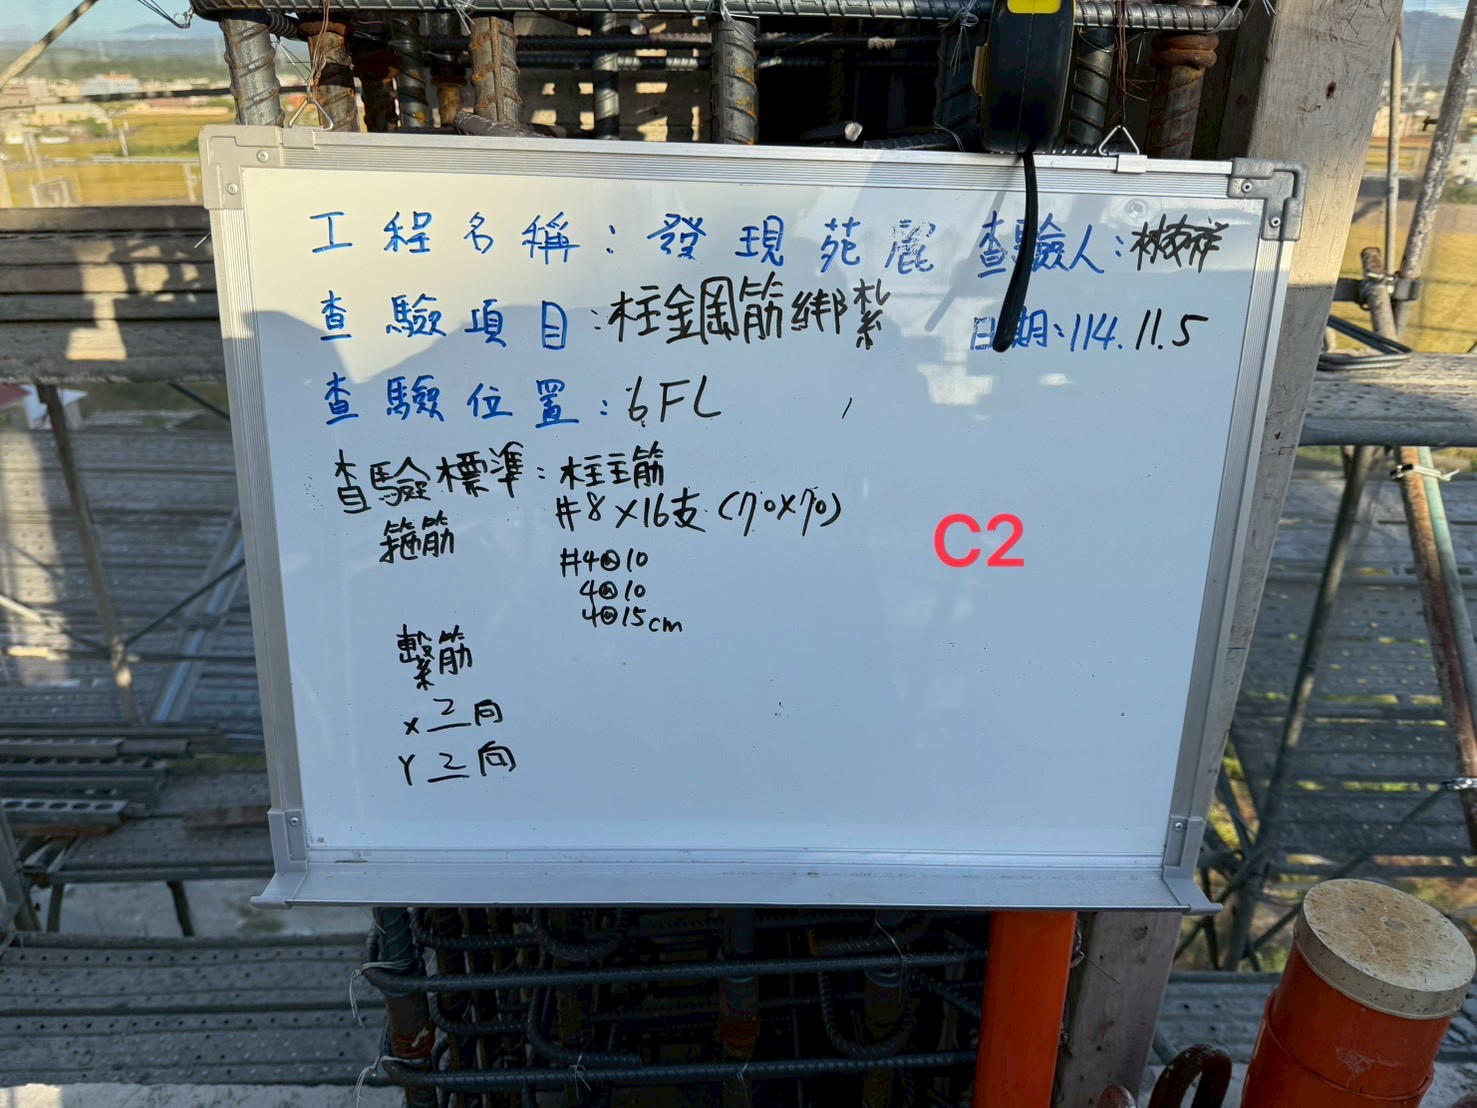 工程名稱：發現苑麗 查驗人：
查驗項目：柱鋼筋綁紮 日期：114.11.5
查驗位置：6FL
查驗標準：柱主筋
#8×16支（70×70）
箍筋
#4@10
4@10
4@15cm
C2
繫筋
X 2 向
Y 2 向